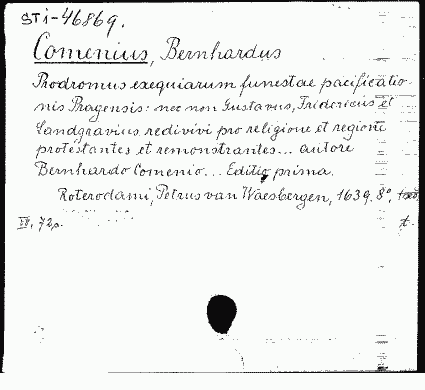 STi-46869.
Comenius, Bernhardus
Prodromus exequiarum funestae pacificatio-
nis Pragensis: nec non Gustavus, Fridericus et
Landgravius redivivi pro religione et regioni
protestantes et remonstrantes... autore
Bernhardo Comenio... Editio prima.
Roterodami, Petrus van Waesbergen, 1639. 8°,
72 p. t.